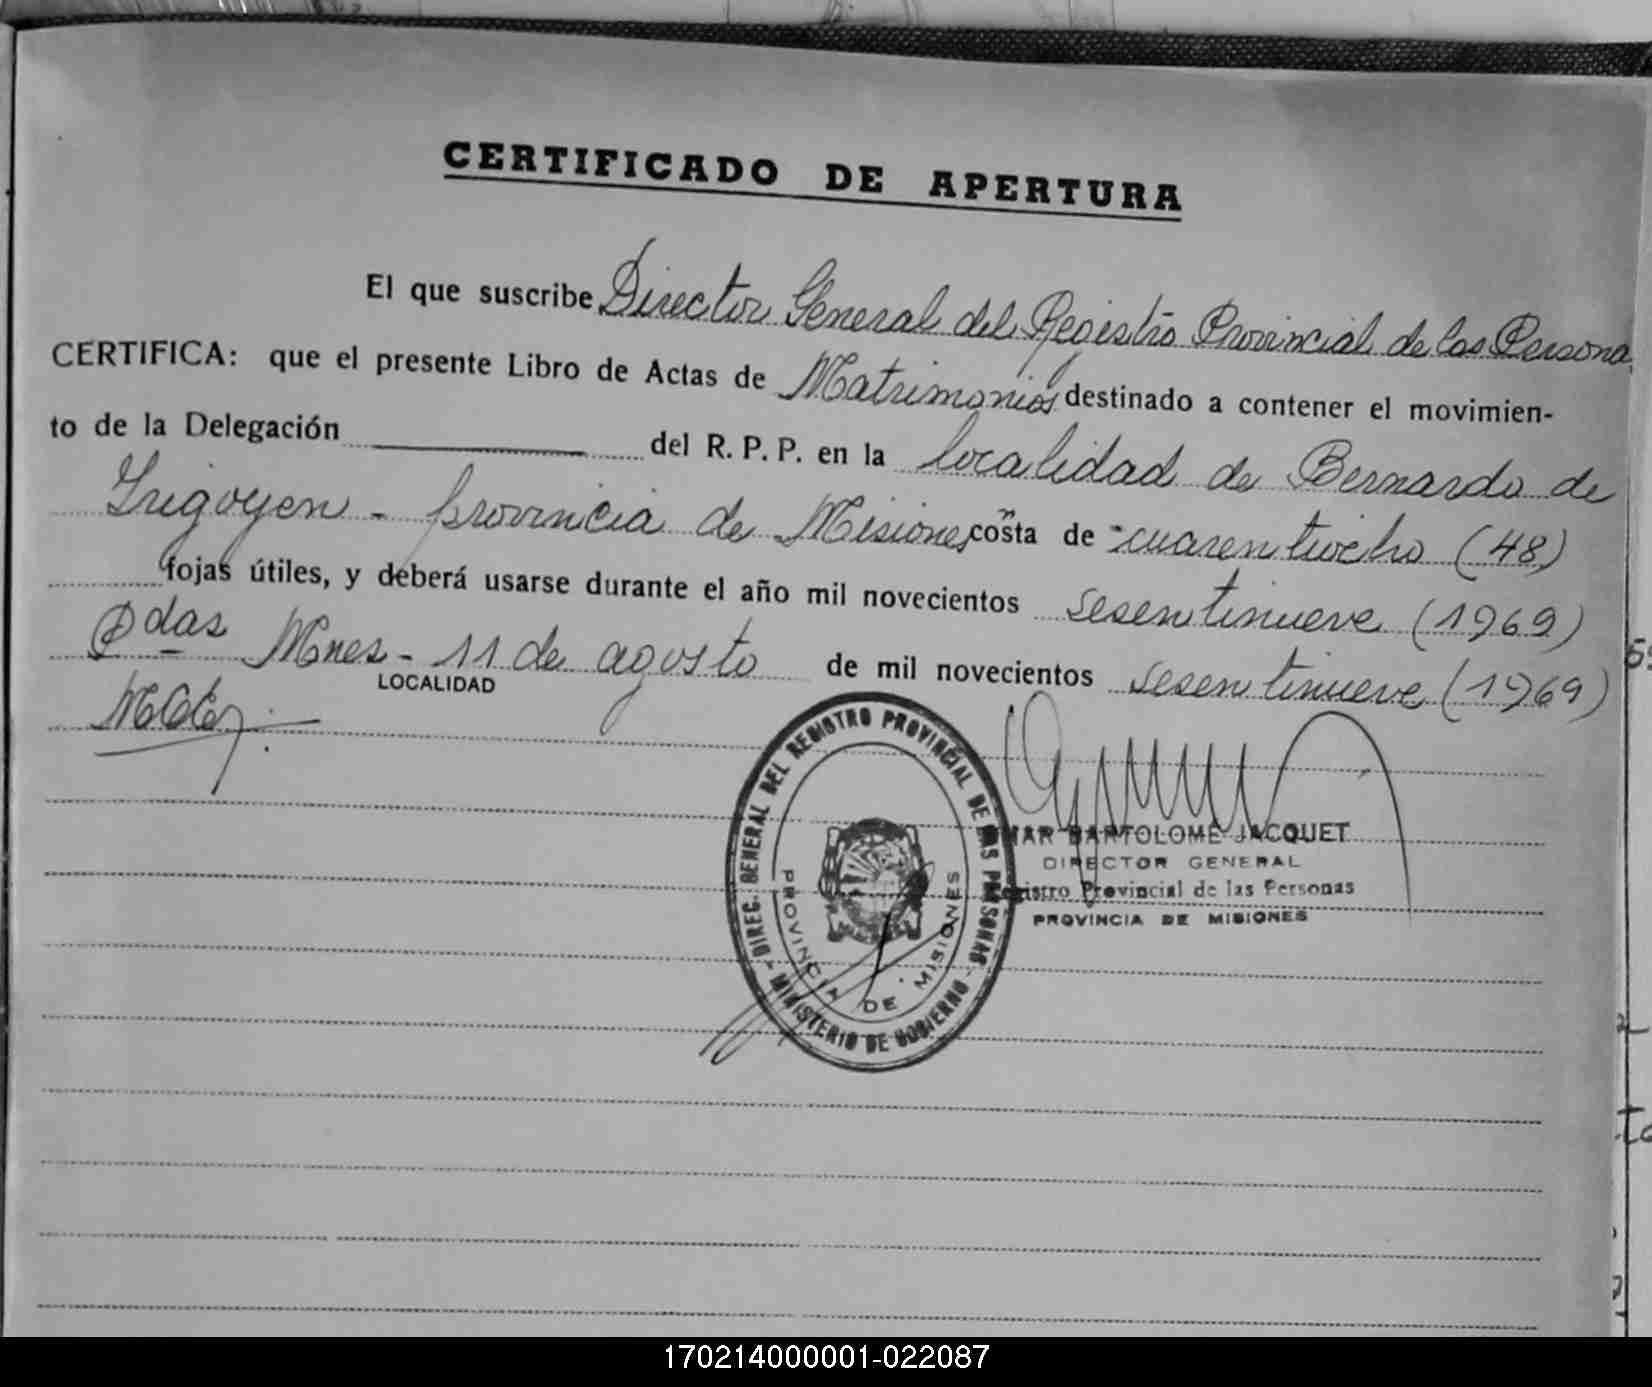 CERTIFICADO DE APERTURA
El que suscribe Director General del Registro Provincial de las Persona
CERTIFICA: que el presente Libro de Actas de Matrimonios destinado a contener el movimien-
to de la Delegación del R. P. P. en la localidad de Bernardo de
Irigoyen - provincia de Misiones costa de cuarentiocho (48)
fojas útiles, y deberá usarse durante el año mil novecientos sesentinueve (1969)
Pdas Mnes - 11 de agosto de mil novecientos sesentinueve (1969)
LOCALIDAD
DIREC. GENERAL DEL REGISTRO PROVINCIAL DE LAS PERSONAS
- MINISTERIO DE GOBIERNO -
PROVINCIA DE MISIONES
MAR BARTOLOMÉ JACQUET
DIRECTOR GENERAL
gistro Provincial de las Personas
PROVINCIA DE MISIONES
170214000001-022087